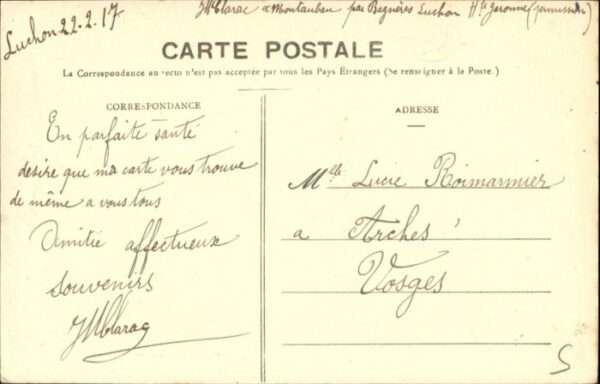 Luchon 22.2.17
JMClarac a Montauban par Bagnères Luchon Hte Garonne (permission)
CARTE POSTALE
La Correspondance au recto n'est pas acceptée par tous les Pays Étrangers (Se renseigner à la Poste.)
CORRESPONDANCE
En parfaite santé
desire que ma carte vous trouve
de même a vous tous
Amitié affectueux
souvenirs
JMClarac
ADRESSE
Mlle Lucie Roimarmier
a Arches
Vosges